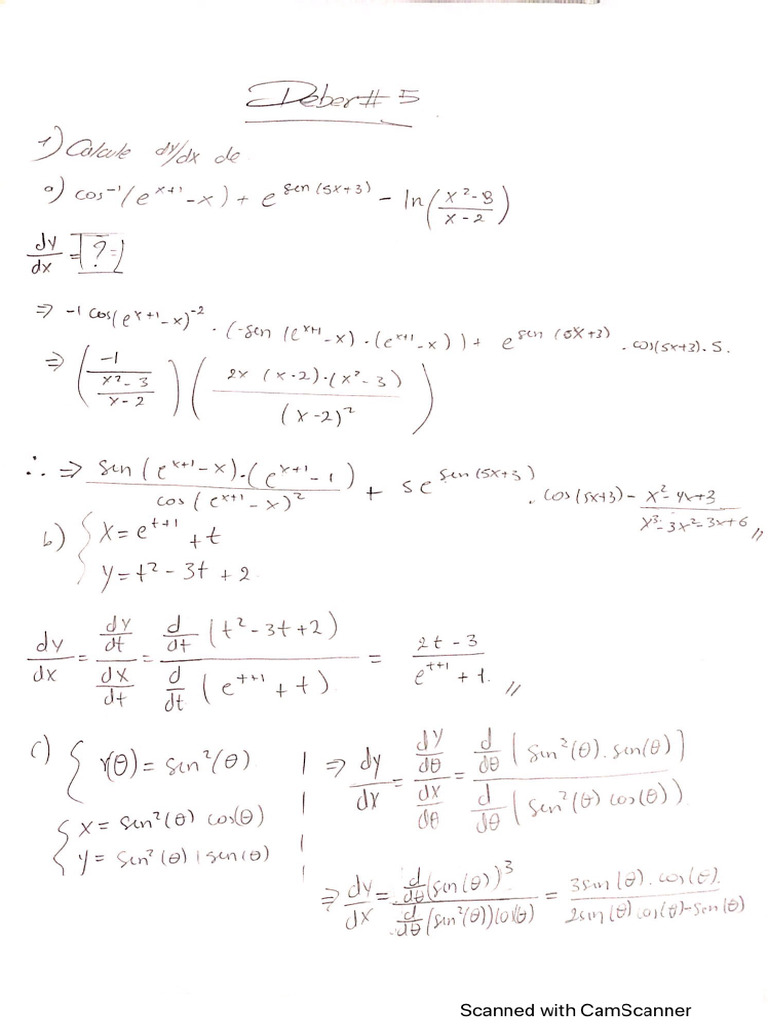 Deber # 5
1) Calcule dy/dx de
a) cos⁻¹(e^(x+1) - x) + e^(sen(5x+3)) - ln((x²-8)/(x-2))
dy/dx = ?
⇒ -1 cos(e^(x+1) - x)^(-2) · (-sen(e^(x+1) - x) · (e^(x+1) - x)) + e^(sen(5x+3)) · cos(5x+3) · 5.
⇒ (-1/((x²-3)/(x-2))) ((2x (x-2)·(x²-3))/(x-2)²)
∴ ⇒ (sen(e^(x+1) - x)·(e^(x+1) - 1))/(cos(e^(x+1) - x)²) + 5e^(sen(5x+3)) · cos(5x+3) - (x²-4x+3)/(x³-3x²-3x+6) //
b) { x = e^(t+1) + t
y = t² - 3t + 2
dy/dx = (dy/dt)/(dx/dt) = (d/dt (t² - 3t + 2))/(d/dt (e^(t+1) + t)) = (2t - 3)/(e^(t+1) + t) //
c) { r(θ) = sen²(θ)
{ x = sen²(θ) cos(θ)
y = sen²(θ) sen(θ)
⇒ dy/dx = (dy/dθ)/(dx/dθ) = (d/dθ (sin²(θ) . sen(θ)))/(d/dθ (sen²(θ) cos(θ)))
⇒ dy/dx = (d/dθ (sin(θ))³)/(d/dθ (sin²(θ)) cos(θ)) = (3sin(θ) . cos(θ))/(2sin(θ) cos(θ) - sen(θ))
Scanned with CamScanner